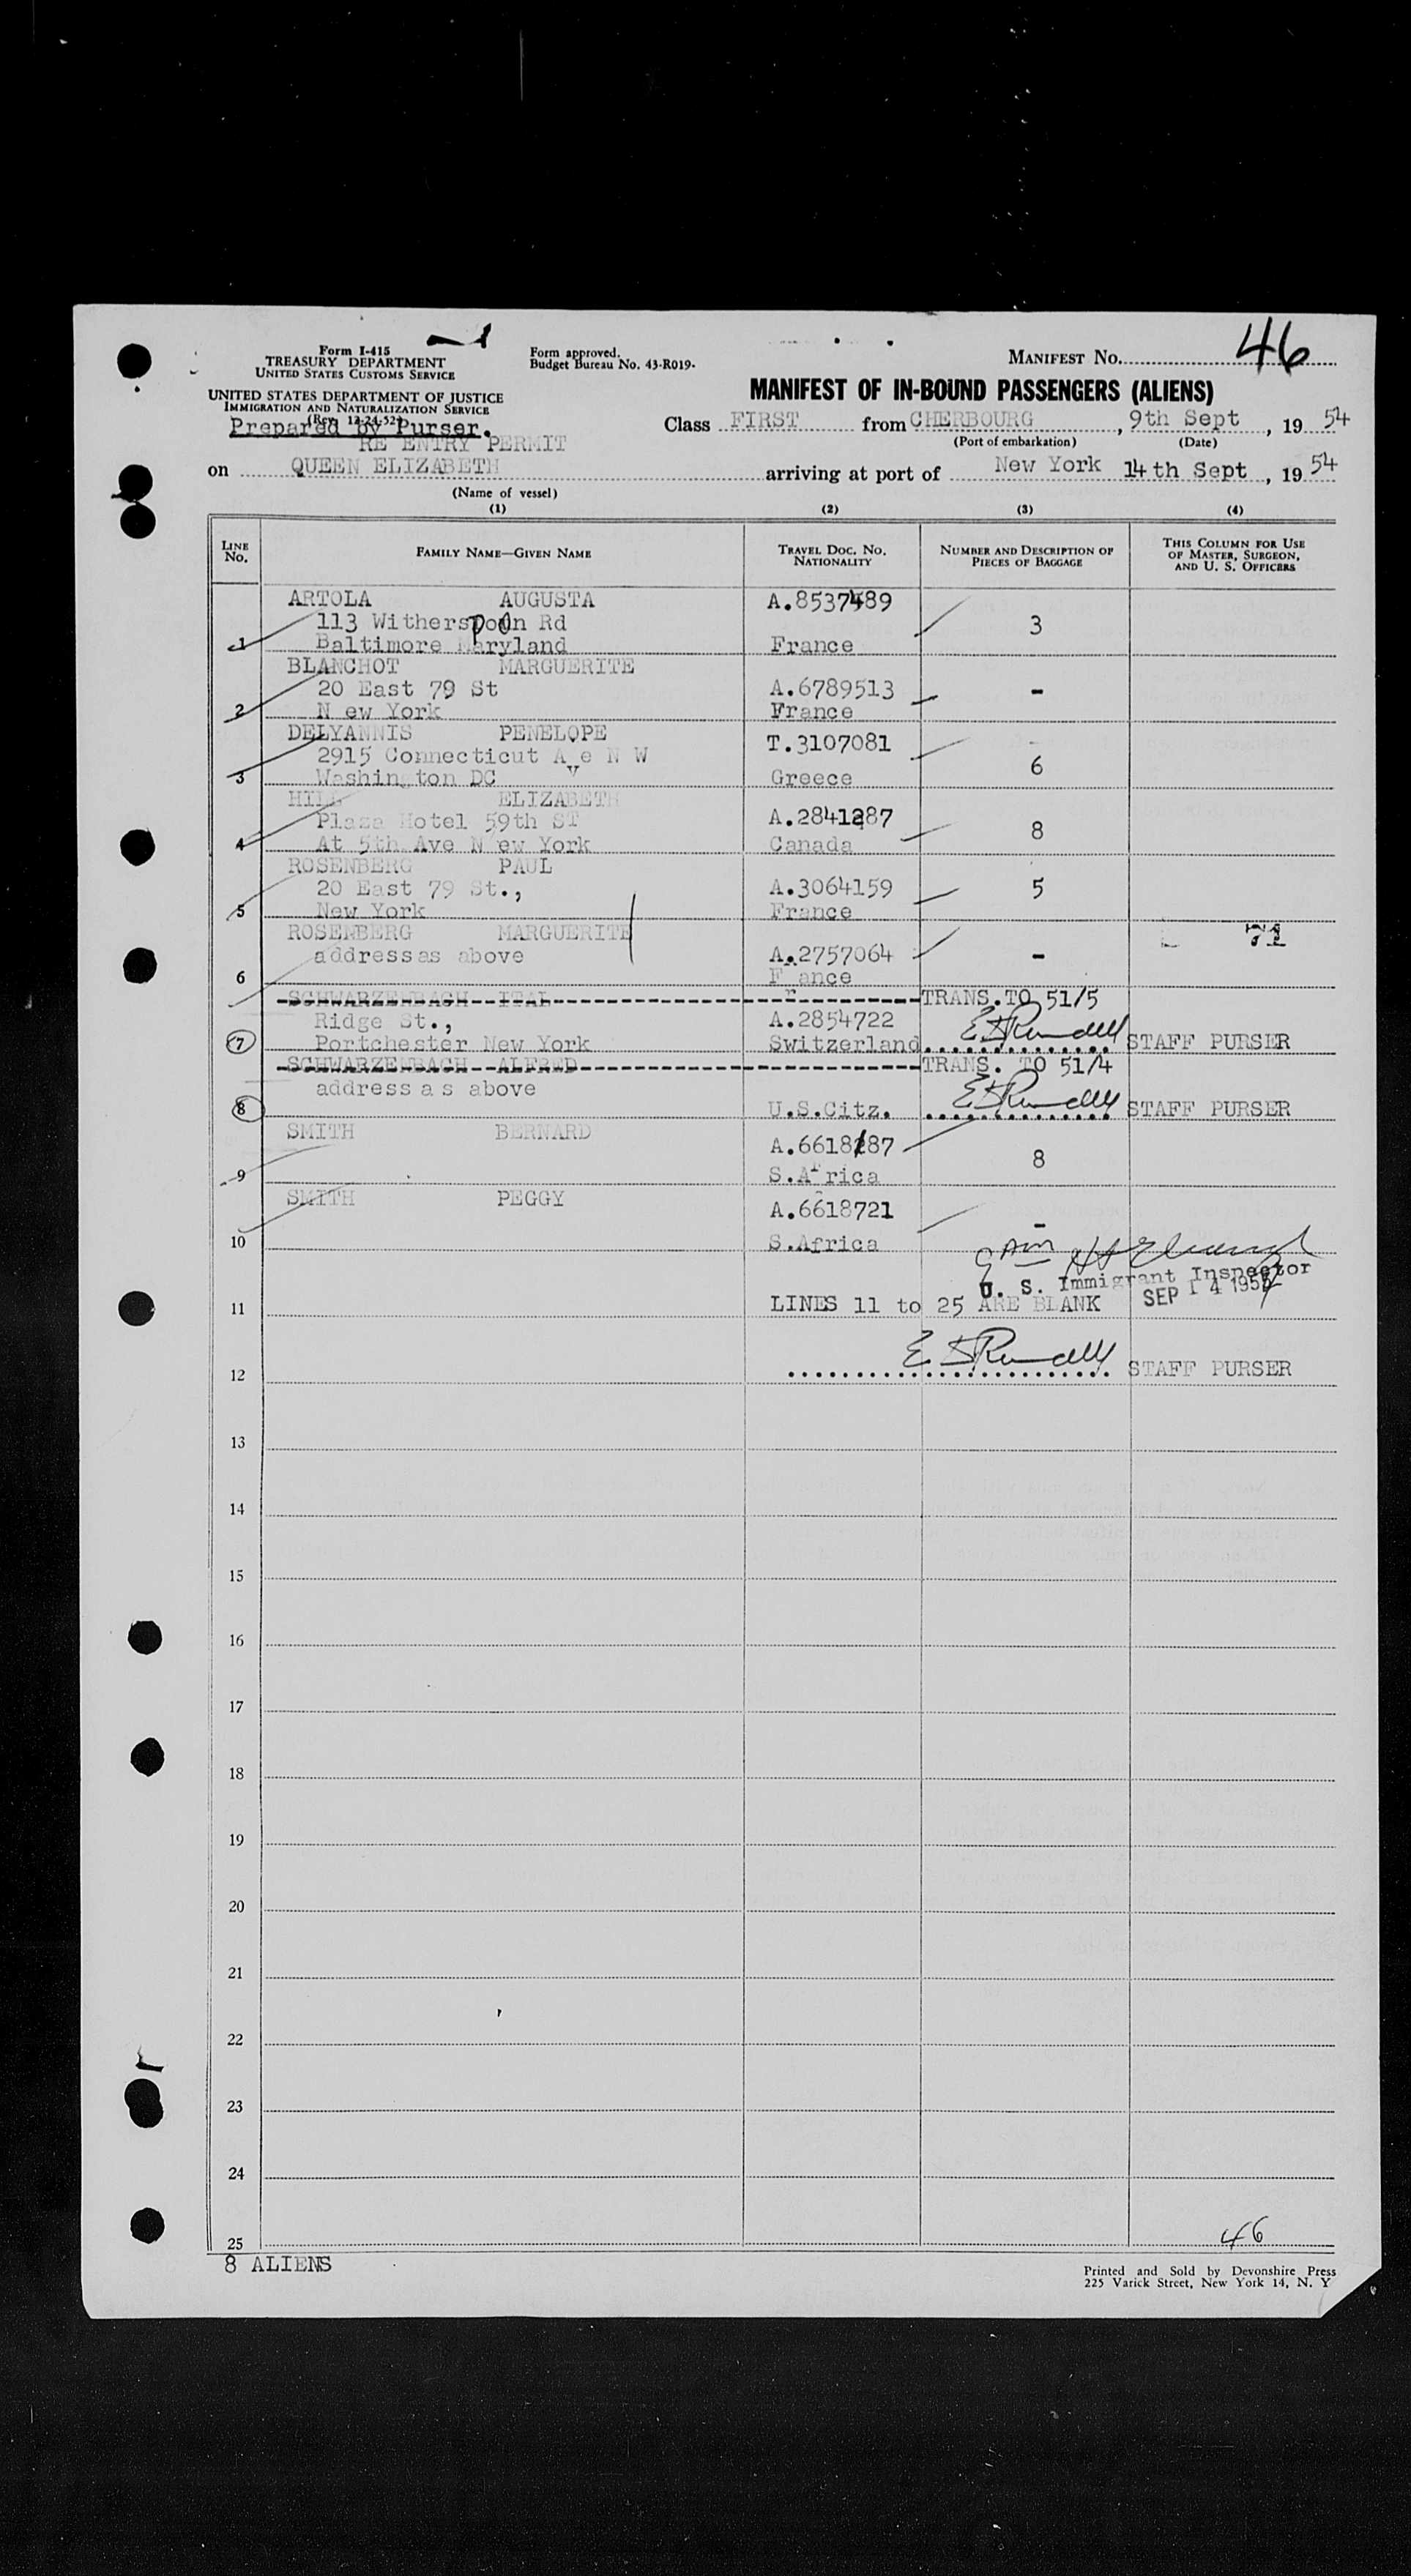 Form I-415
TREASURY DEPARTMENT
UNITED STATES CUSTOMS SERVICE
UNITED STATES DEPARTMENT OF JUSTICE
IMMIGRATION AND NATURALIZATION SERVICE
(Rev. 12-24-52)
Prepared by Purser.
RE ENTRY PERMIT
Form approved.
Budget Bureau No. 43-R019.
MANIFEST NO. 46
MANIFEST OF IN-BOUND PASSENGERS (ALIENS)
Class FIRST from CHERBOURG, 9th Sept, 19 54
(Port of embarkation) (Date)
on QUEEN ELIZABETH arriving at port of New York 14th Sept, 19 54
(Name of vessel)
(1) (2) (3) (4)
LINE NO. FAMILY NAME—GIVEN NAME TRAVEL DOC. NO. NATIONALITY NUMBER AND DESCRIPTION OF PIECES OF BAGGAGE THIS COLUMN FOR USE OF MASTER, SURGEON, AND U. S. OFFICERS
ARTOLA AUGUSTA A.8537489
113 Witherspoon Rd 3
1 Baltimore Maryland France
BLANCHOT MARGUERITE
20 East 79 St A.6789513 -
2 N ew York France
DELYANNIS PENELOPE T.3107081 -
2915 Connecticut Ave N W 6
3 Washington DC Greece
HILL ELIZABETH
Plaza Hotel 59th ST A.2841287 8
4 At 5th Ave N ew York Canada
ROSENBERG PAUL
20 East 79 St., A.3064159 5
5 New York France
ROSENBERG MARGUERITE 71
address as above A.2757064 -
6 France
SCHWARZENBACH ITAL TRANS.TO 51/5
Ridge St., A.2854722
7 Portchester New York Switzerland STAFF PURSER
SCHWARZENBACH ALFRED TRANS. TO 51/4
address a s above
8 U.S.Citz. STAFF PURSER
SMITH BERNARD
A.6618 87 8
9 S.Africa
SMITH PEGGY
A.6618721 -
10 S.Africa
U. S. Immigrant Inspector
SEP 14 1954
11 LINES 11 to 25 ARE BLANK
12 STAFF PURSER
13
14
15
16
17
18
19
20
21
22
23
24
25 46
8 ALIENS
Printed and Sold by Devonshire Press
225 Varick Street, New York 14, N. Y